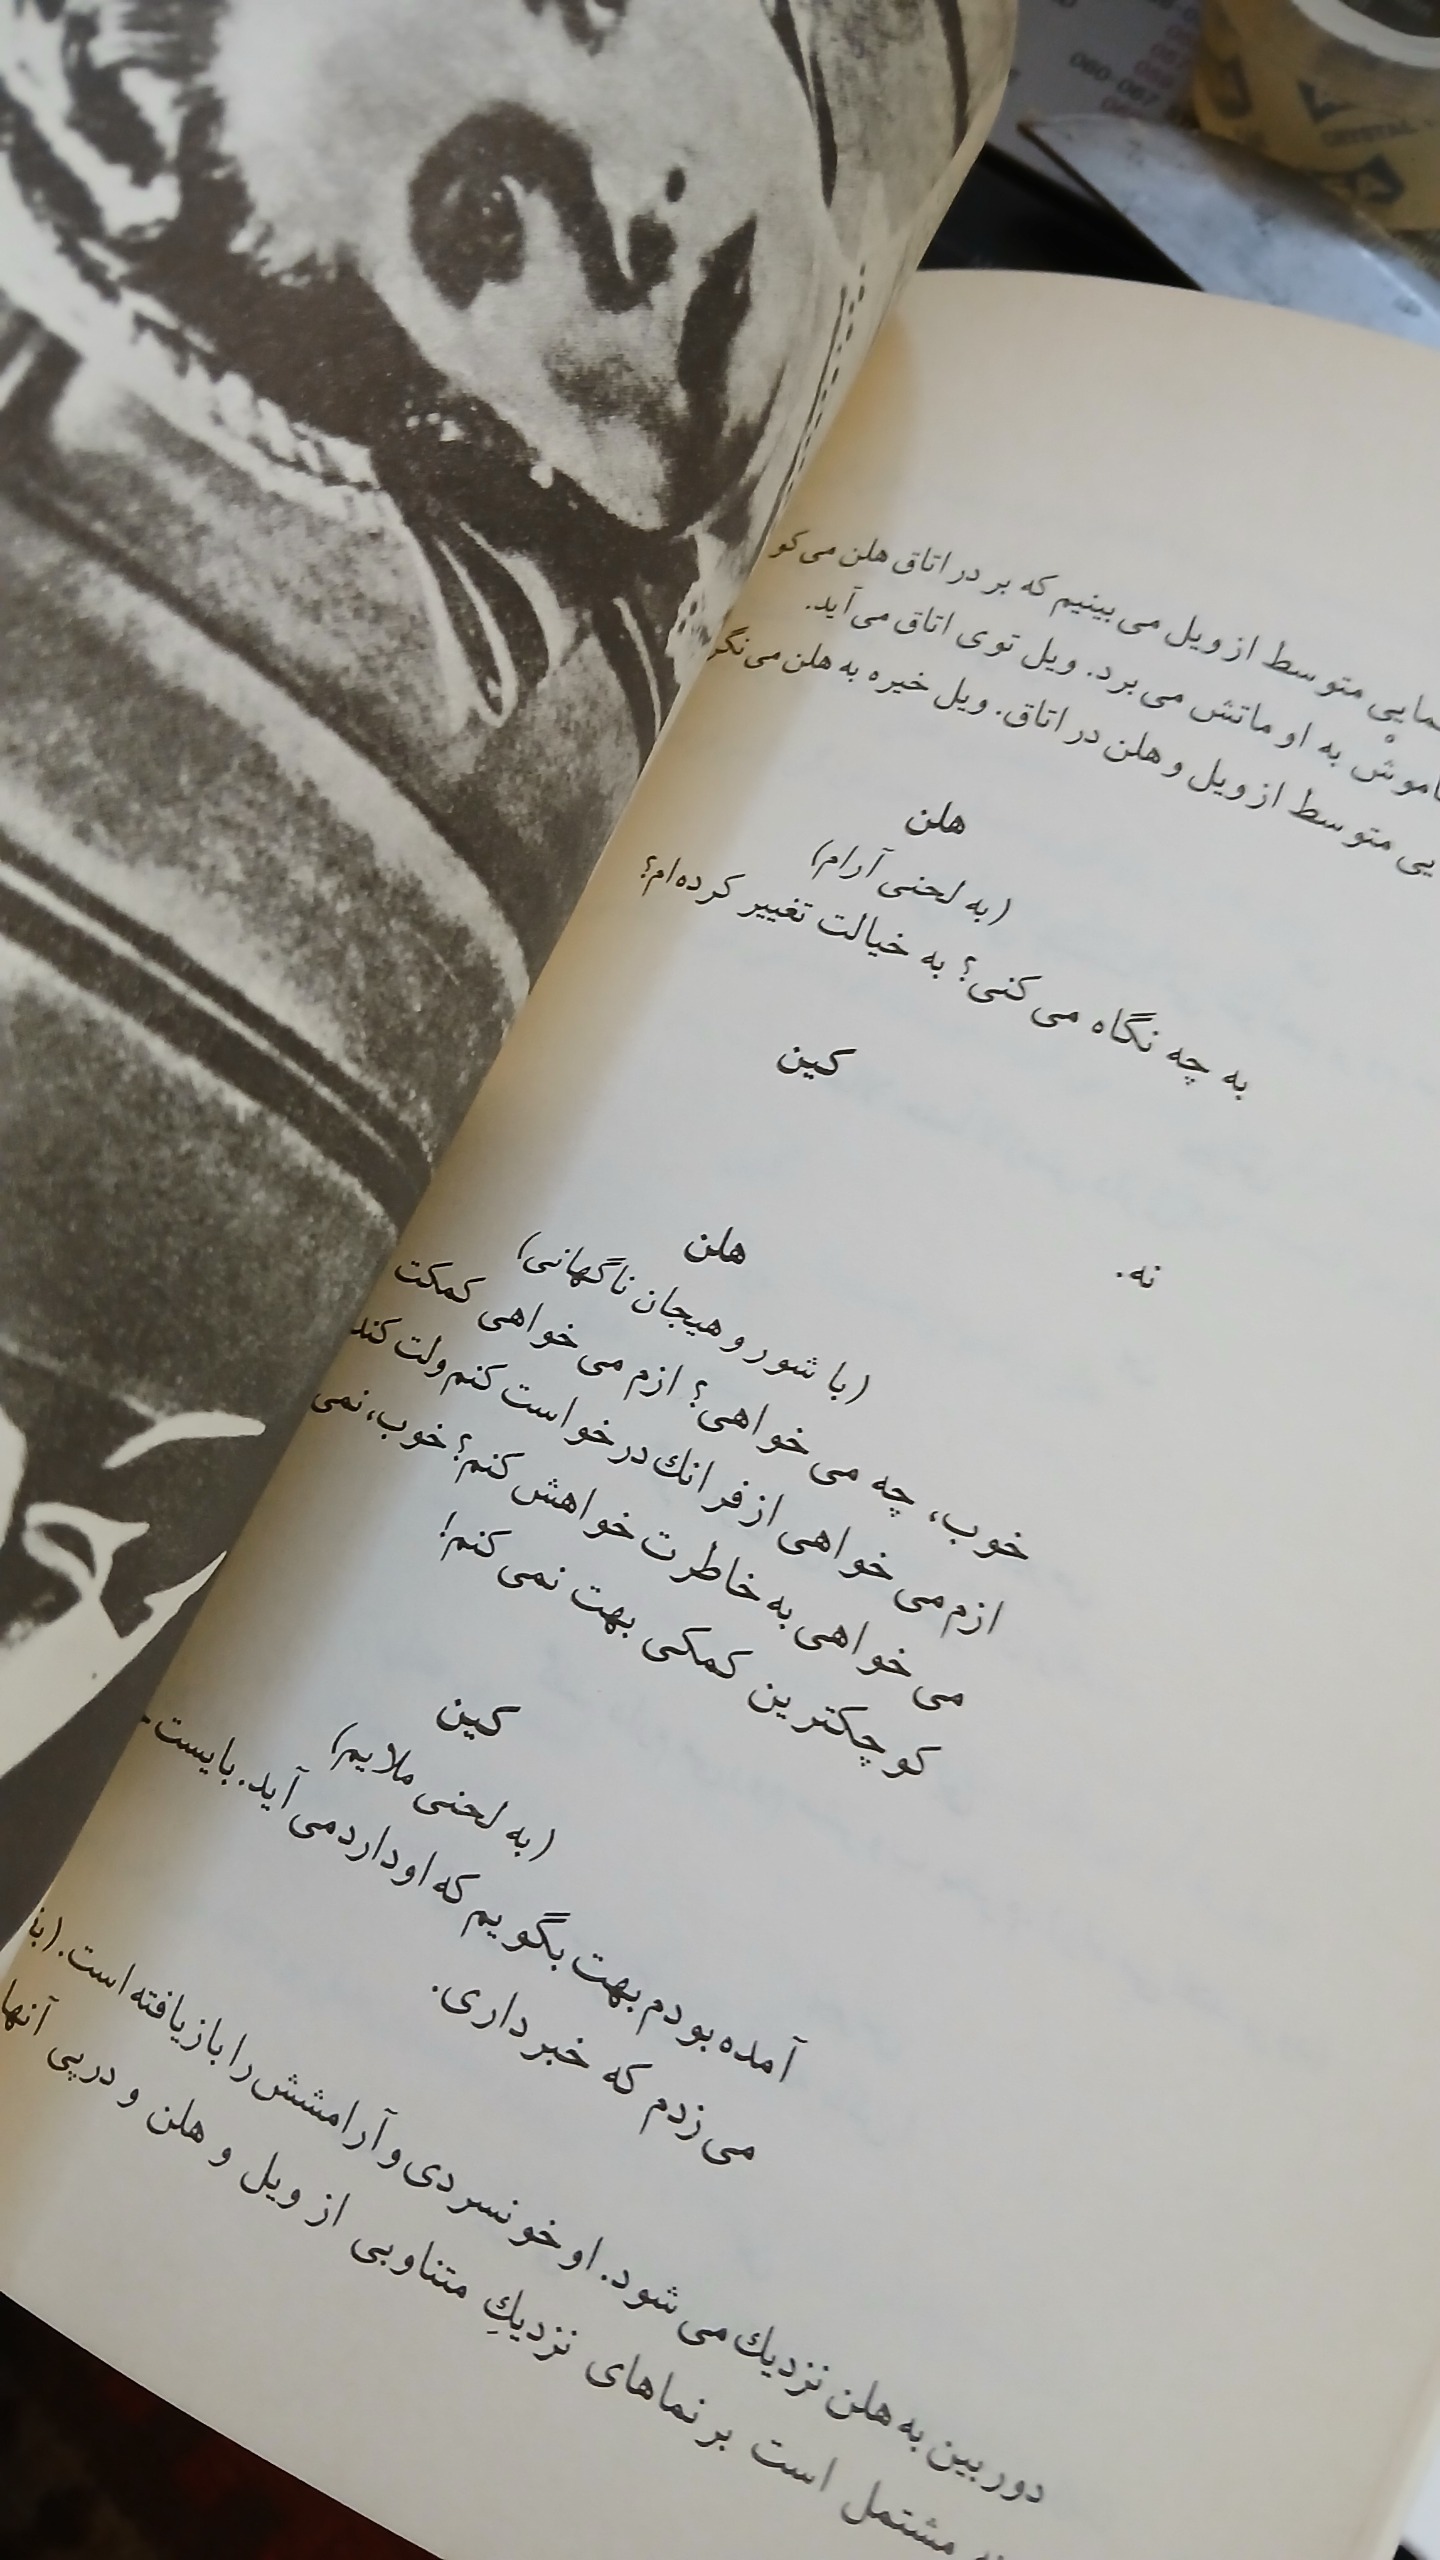 متوسط از ویل می‌بینیم که بر در اتاق هلن می‌کو
به او ماتش می‌برد. ویل توی اتاق می‌آید.
متوسط از ویل و هلن در اتاق. ویل خیره به هلن می‌نگر
هلن
(به لحنی آرام)
به چه نگاه می‌کنی؟ به خیالت تغییر کرده‌ام؟
کین
نه.
هلن
(با شور و هیجان ناگهانی)
خوب، چه می‌خواهی؟ ازم می‌خواهی کمکت
ازم می‌خواهی از فرانك درخواست کنم ولت کند
می‌خواهی به خاطرت خواهش کنم؟ خوب، نمی
کوچکترین کمکی بهت نمی‌کنم!
کین
(به لحنی ملایم)
آمده بودم بهت بگویم که او دارد می‌آید. بایست
می‌زدم که خبر داری.
دوربین به هلن نزدیك می‌شود. او خونسردی و آرامشش را بازیافته است. (با
مشتمل است بر نماهای نزدیكِ متناوبی از ویل و هلن و درپی آنها
CRYSTAL